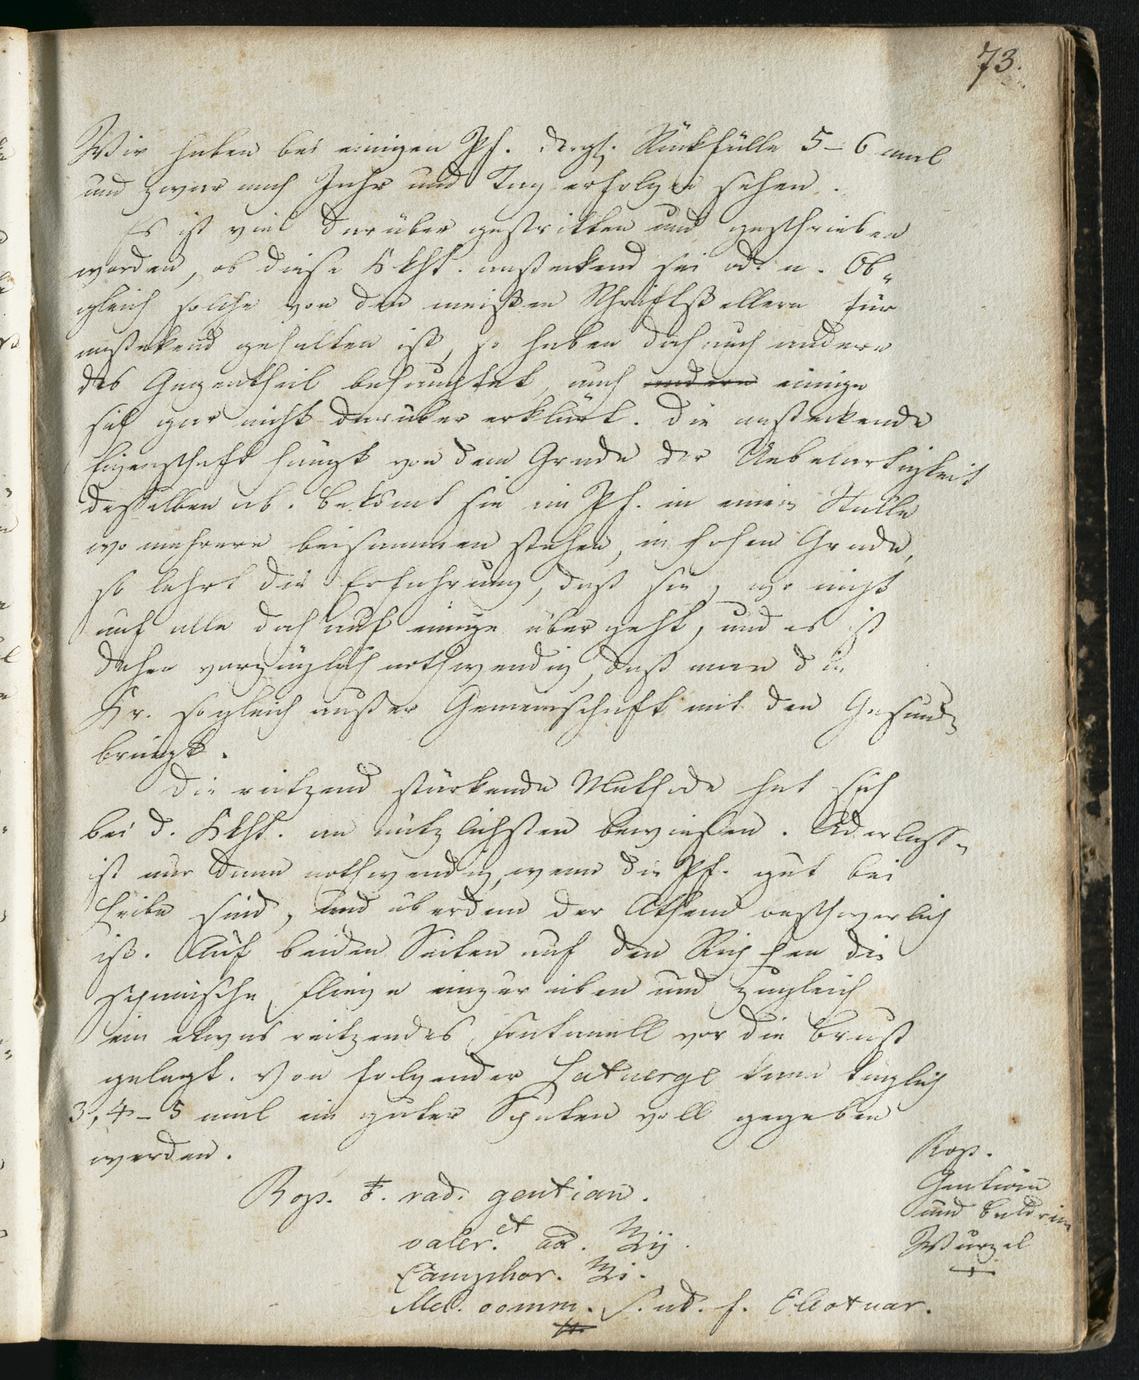 73.
Wir haben bei einigen Pf. dergl. Rückfälle 5–6 mal
und zwar nach Jahr und Tag erfolgen sehen.
Es ist viel darüber gestritten und geschrieben
worden, ob diese Kkht. ansteckend sei od. n. Ob-
gleich solche von den meisten Schriftstellern für
anstekend gehalten ist, so haben doch auch andere
das Gegentheil behauptet, auch andere einige
sich gar nicht darüber erklärt. Die ansteckende
Eigenschaft hängt von dem Grade der Uebelartigkeit
desselben ab. Bekömt sie ein Pf. in einem Stalle
wo mehrere beisammen stehen, in hohen Grade,
so lehrt die Erfahrung, daß sie, wo nicht
auf alle doch auf einige über geht, und es ist
daher vorzüglich nothwendig, daß man die
Kr. sogleich außer Gemeinschaft mit den Gesund
bringt.
Die reitzend stärkende Methode hat sich
bei d. Kkht. am nützlichsten bewiesen. Aderlass-
ist nur dann nothwendig, wenn die Pf. gut bei
Leibe sind, und überdem der Athem beschwerlich
ist. Auf beiden Seiten auf den Rippen die
spanische Fliege einzureiben und zugleich
ein etwas reitzendes Fontanell vor die Brust
gelegt. Von folgender Latwerge kann täglich
3, 4–5 mal ein guter Spaten voll gegeben
werden.
Rcp. . rad. gentian.
et
valer. aa. ℥ij.
Camphor. ℥i.
M. comm. f. Electuar.
Rcp.
Gentian
und Baldrian
Wurzel